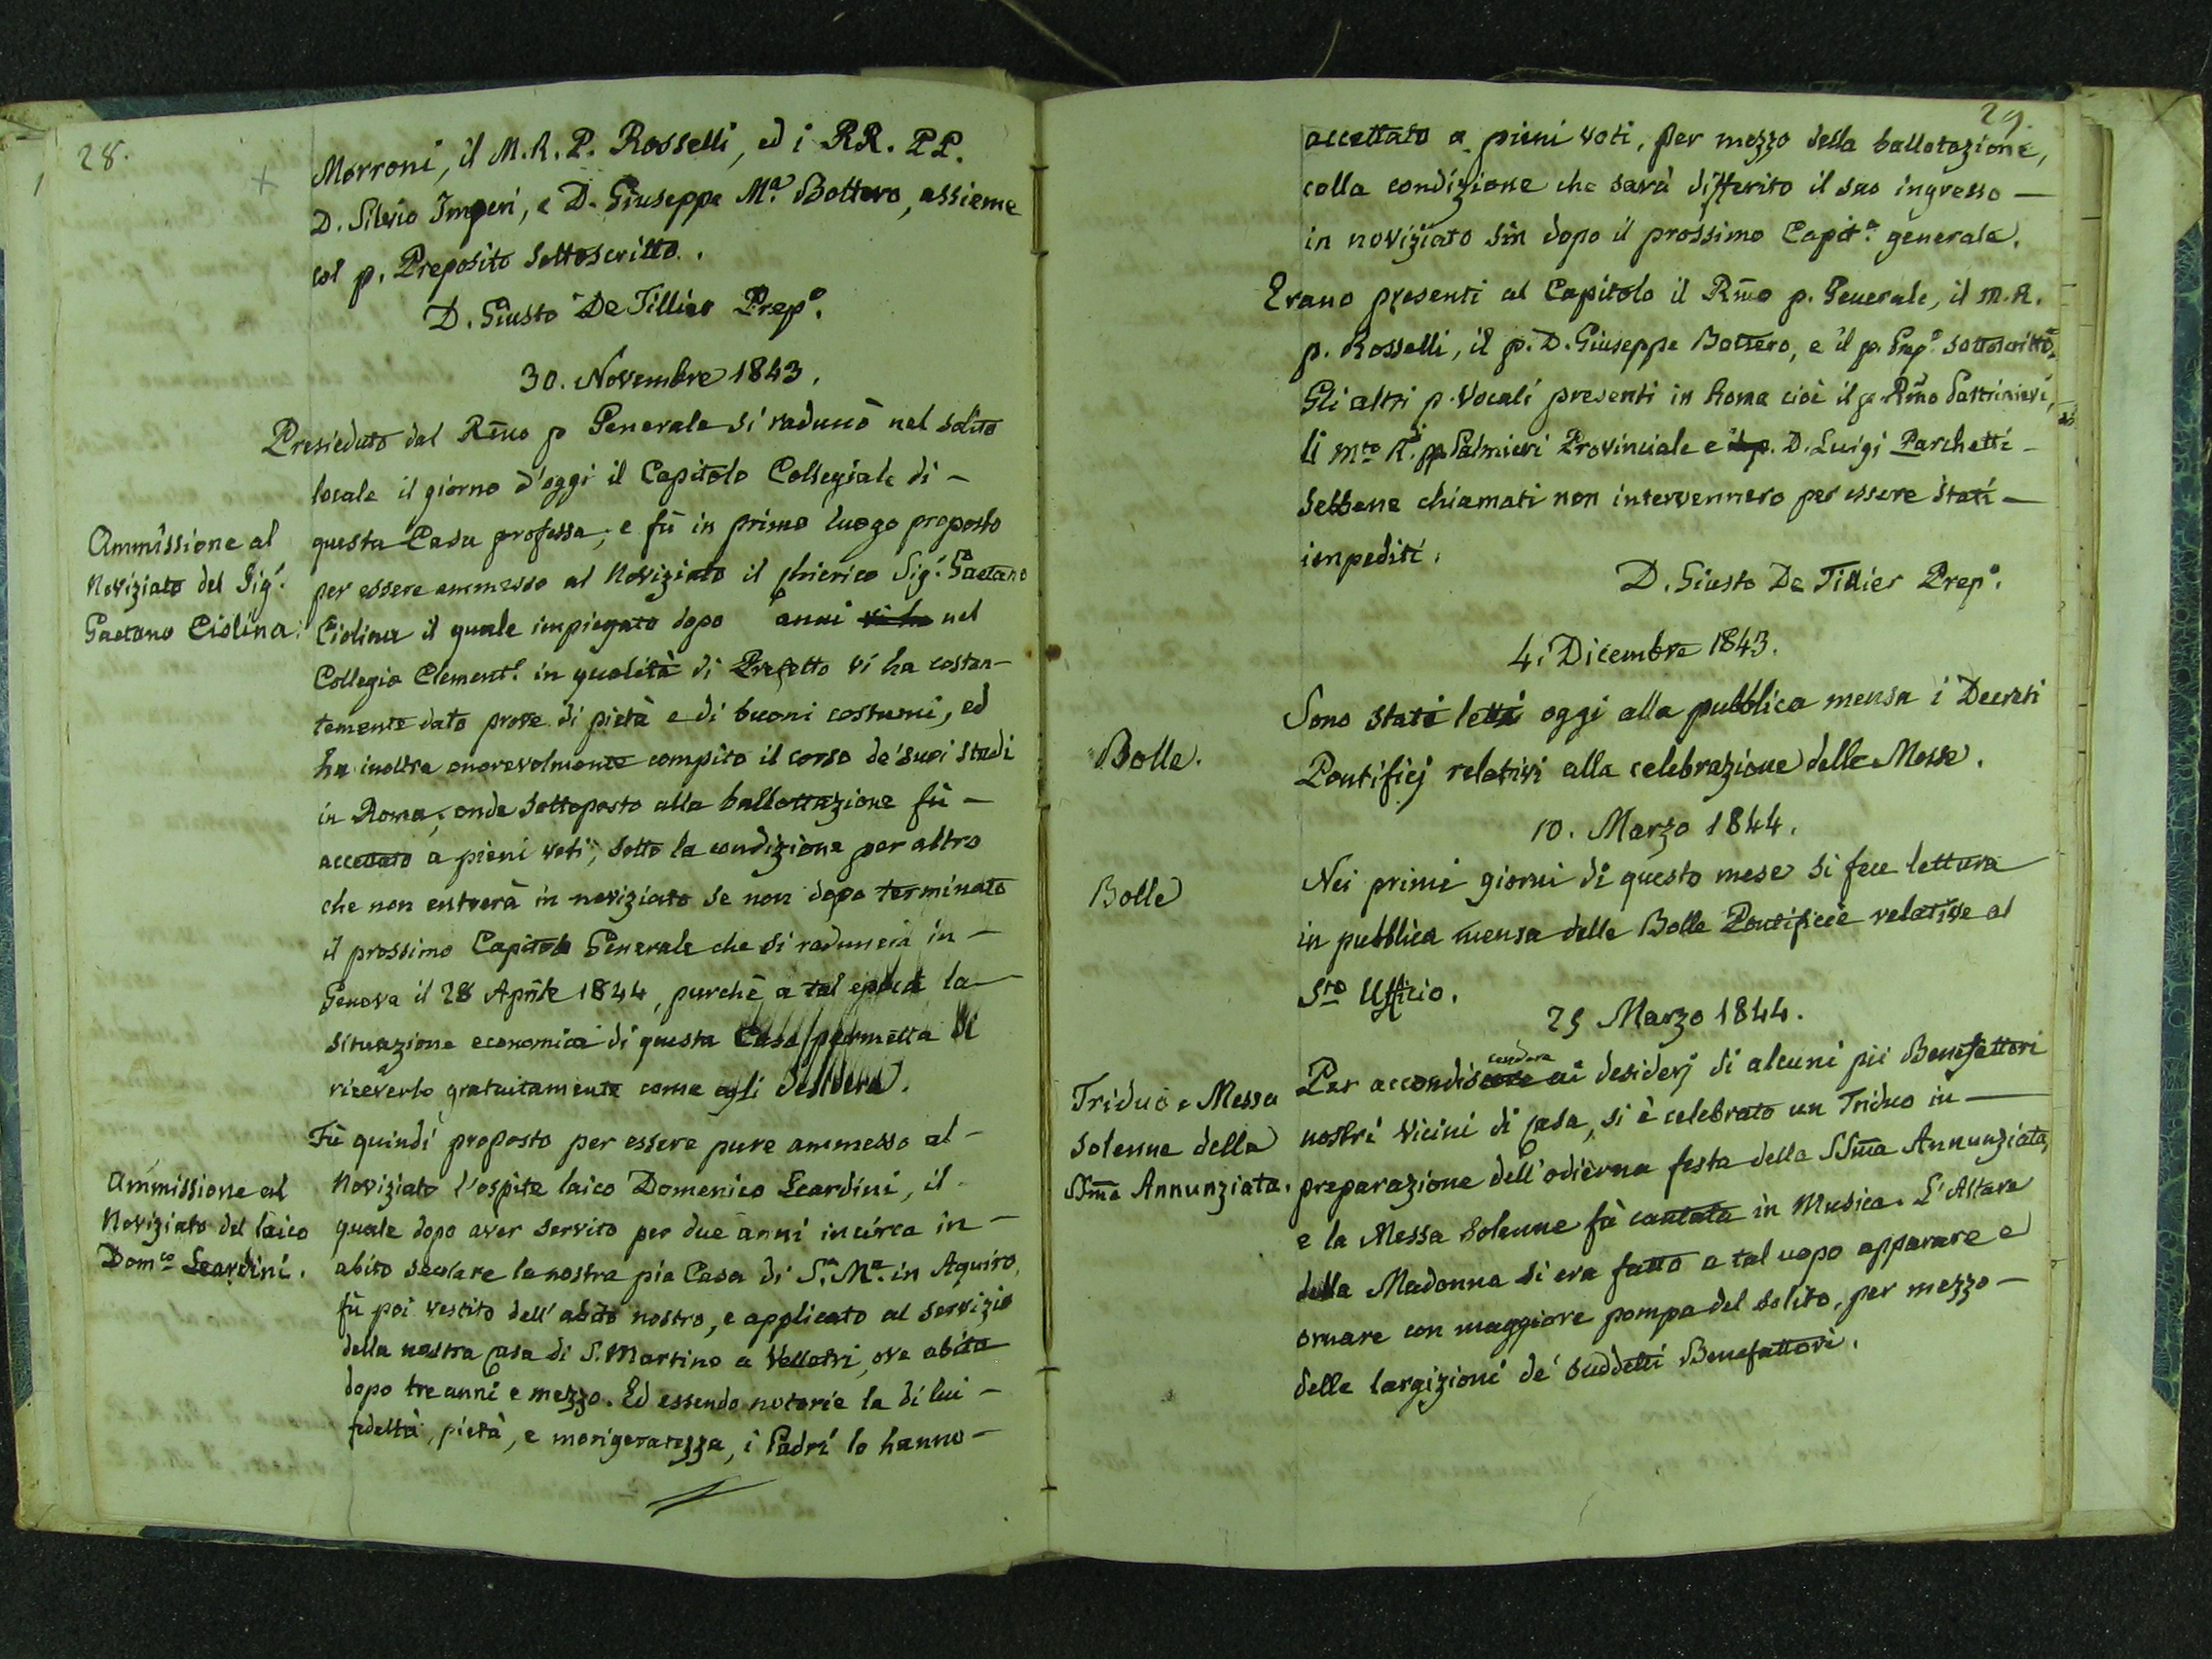 28.
Morroni, il M.R.P. Rosselli, ed i RR. PP.
D. Silvio Imperi, e D. Giuseppe Mª Bottero, assieme
col p. Preposito sottoscritto.
D. Giusto De Tillier Prepº.
30. Novembre 1843.
Presieduto dal Rmo p Generale si radunò nel solito
locale il giorno d'oggi il Capitolo Collegiale di –
Ammissione al
Noviziato del Sig.
Gaetano Ciolina.
questa Casa professa, e fù in primo luogo proposto
per essere ammesso al Noviziato il chierico Sig. Gaetano
Ciolina il quale impiegato dopo anni vi ha nel
Collegio Clement. in qualità di Prefetto vi ha costan-
temente dato prove di pietà e di buoni costumi, ed
ha inoltre onorevolmente compito il corso de' suoi studi
in Roma; onde sottoposto alla ballottazione fù –
accettato a pieni voti, sotto la condizione per altro
che non entrerà in noviziato se non dopo terminato
il prossimo Capitolo Generale che si radunerà in –
Genova il 28 Aprile 1844, purchè a tal epoca la –
situazione economica di questa Casa permetta di
riceverlo gratuitamente come egli desidera.
Fù quindi proposto per essere pure ammesso al –
Ammissione al
Noviziato del laico
Domco Leardini.
Noviziato l'ospite laico Domenico Leardini, il
quale dopo aver servito per due anni incirca in –
abito secolare la nostra pia Casa di S. Mª. in Aquiro,
fù poi vestito dell'abito nostro, e applicato al servizio
della nostra casa di S. Martino a Velletri, ove abita
dopo tre anni e mezzo. Ed essendo notorie la di lui –
fedeltà, pietà, e morigeratezza, i Padri lo hanno –
29.
accettato a pieni voti, per mezzo della ballotazione,
colla condizione che sarà differito il suo ingresso –
in noviziato sin dopo il prossimo Capitº. generale.
Erano presenti al Capitolo il Rmo p. Generale, il M.R.
p. Rosselli, il p. D. Giuseppe Bottero, e il p. Prepº sottoscritto.
Gli altri p. Vocali presenti in Roma cioè il p. Rmo
li Mto R. pp. Palmieri Provinciale e il p. D. Luigi Parchetti –
sebbene chiamati non intervennero per essere stati –
impediti.
D. Giusto De Tillier Prepº.
4. Dicembre 1843.
Bolle.
Sono stati letti oggi alla pubblica mensa i Decreti
Pontificj relativi alla celebrazione delle Messe.
10. Marzo 1844.
Bolle
Nei primi giorni di questo mese si fece lettura
in pubblica mensa delle Bolle Pontificie relative al
Sto Uffizio.
25 Marzo 1844.
Triduo e Messa
solenne della
SSma Annunziata.
Per accondiscendere ai desiderj di alcuni pii Benefattori
nostri vicini di casa, si è celebrato un Triduo in –
preparazione dell'odierna festa della SSma Annunziata,
e la Messa solenne fù cantata in Musica. L'Altare
della Madonna si era fatto a tal uopo apparare e
ornare con maggiore pompa del solito, per mezzo –
delle largizioni de' suddetti Benefattori.